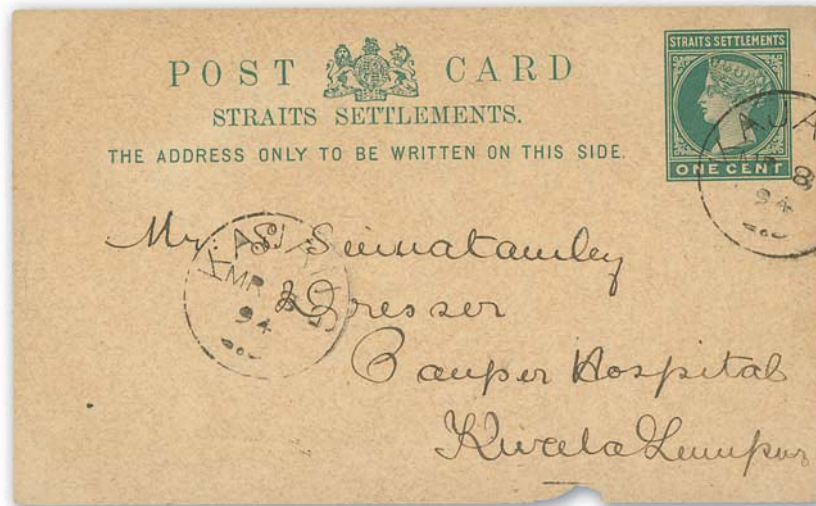 POST CARD
STRAITS SETTLEMENTS.
THE ADDRESS ONLY TO BE WRITTEN ON THIS SIDE.
STRAITS SETTLEMENTS
ONE CENT
KAJA
8
94
Mr. S. Sinnatambey
Dresser
Pauper Hospital
Kwala Lumpur
KAJANG
MR 8
94